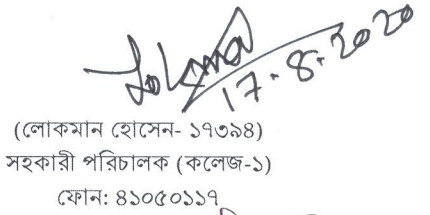 17.8.2020
(লোকমান হোসেন- ১৭৩৯৪)
সহকারী পরিচালক (কলেজ-১)
ফোন: ৪১০৫০১১৭